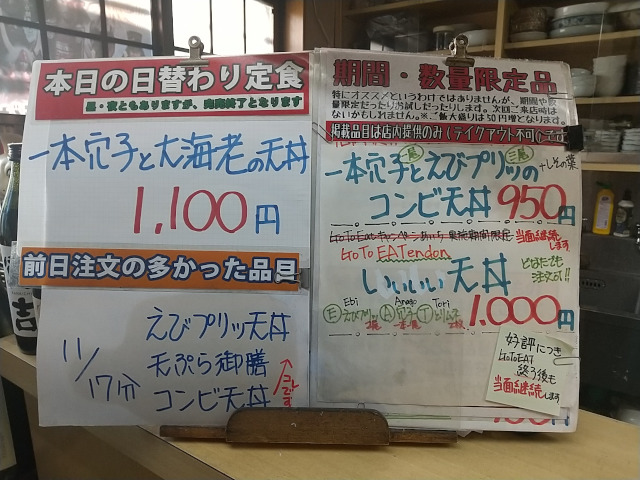 本日の日替わり定食
昼・夜ともありますが、完売終了となります
一本穴子と大海老の天丼
1,100円
前日注文の多かった品目
11/17分
えびプリッ天丼
天ぷら御膳
コンビ天丼
コレです
期間・数量限定品
特にオススメというわけではありませんが、期間や数
量限定だったりお試しだったりします。次回ご来店時は
ないかもしれません。※ご飯大盛りは50円増となります。
掲載品目は店内提供のみ(テイクアウト不可)です
一本穴子とえびプリッの
一尾
三尾
+しその葉
コンビ天丼 950円
当面継続します
GoTo EATendon
いいいい天丼
どなたでも
注文可!!
Ebi Anago Tori
Ⓔえびプリッ Ⓐ穴子 Ⓣとり
1,000円
好評につき
GoToEAT
終了後も
当面継続します
吉